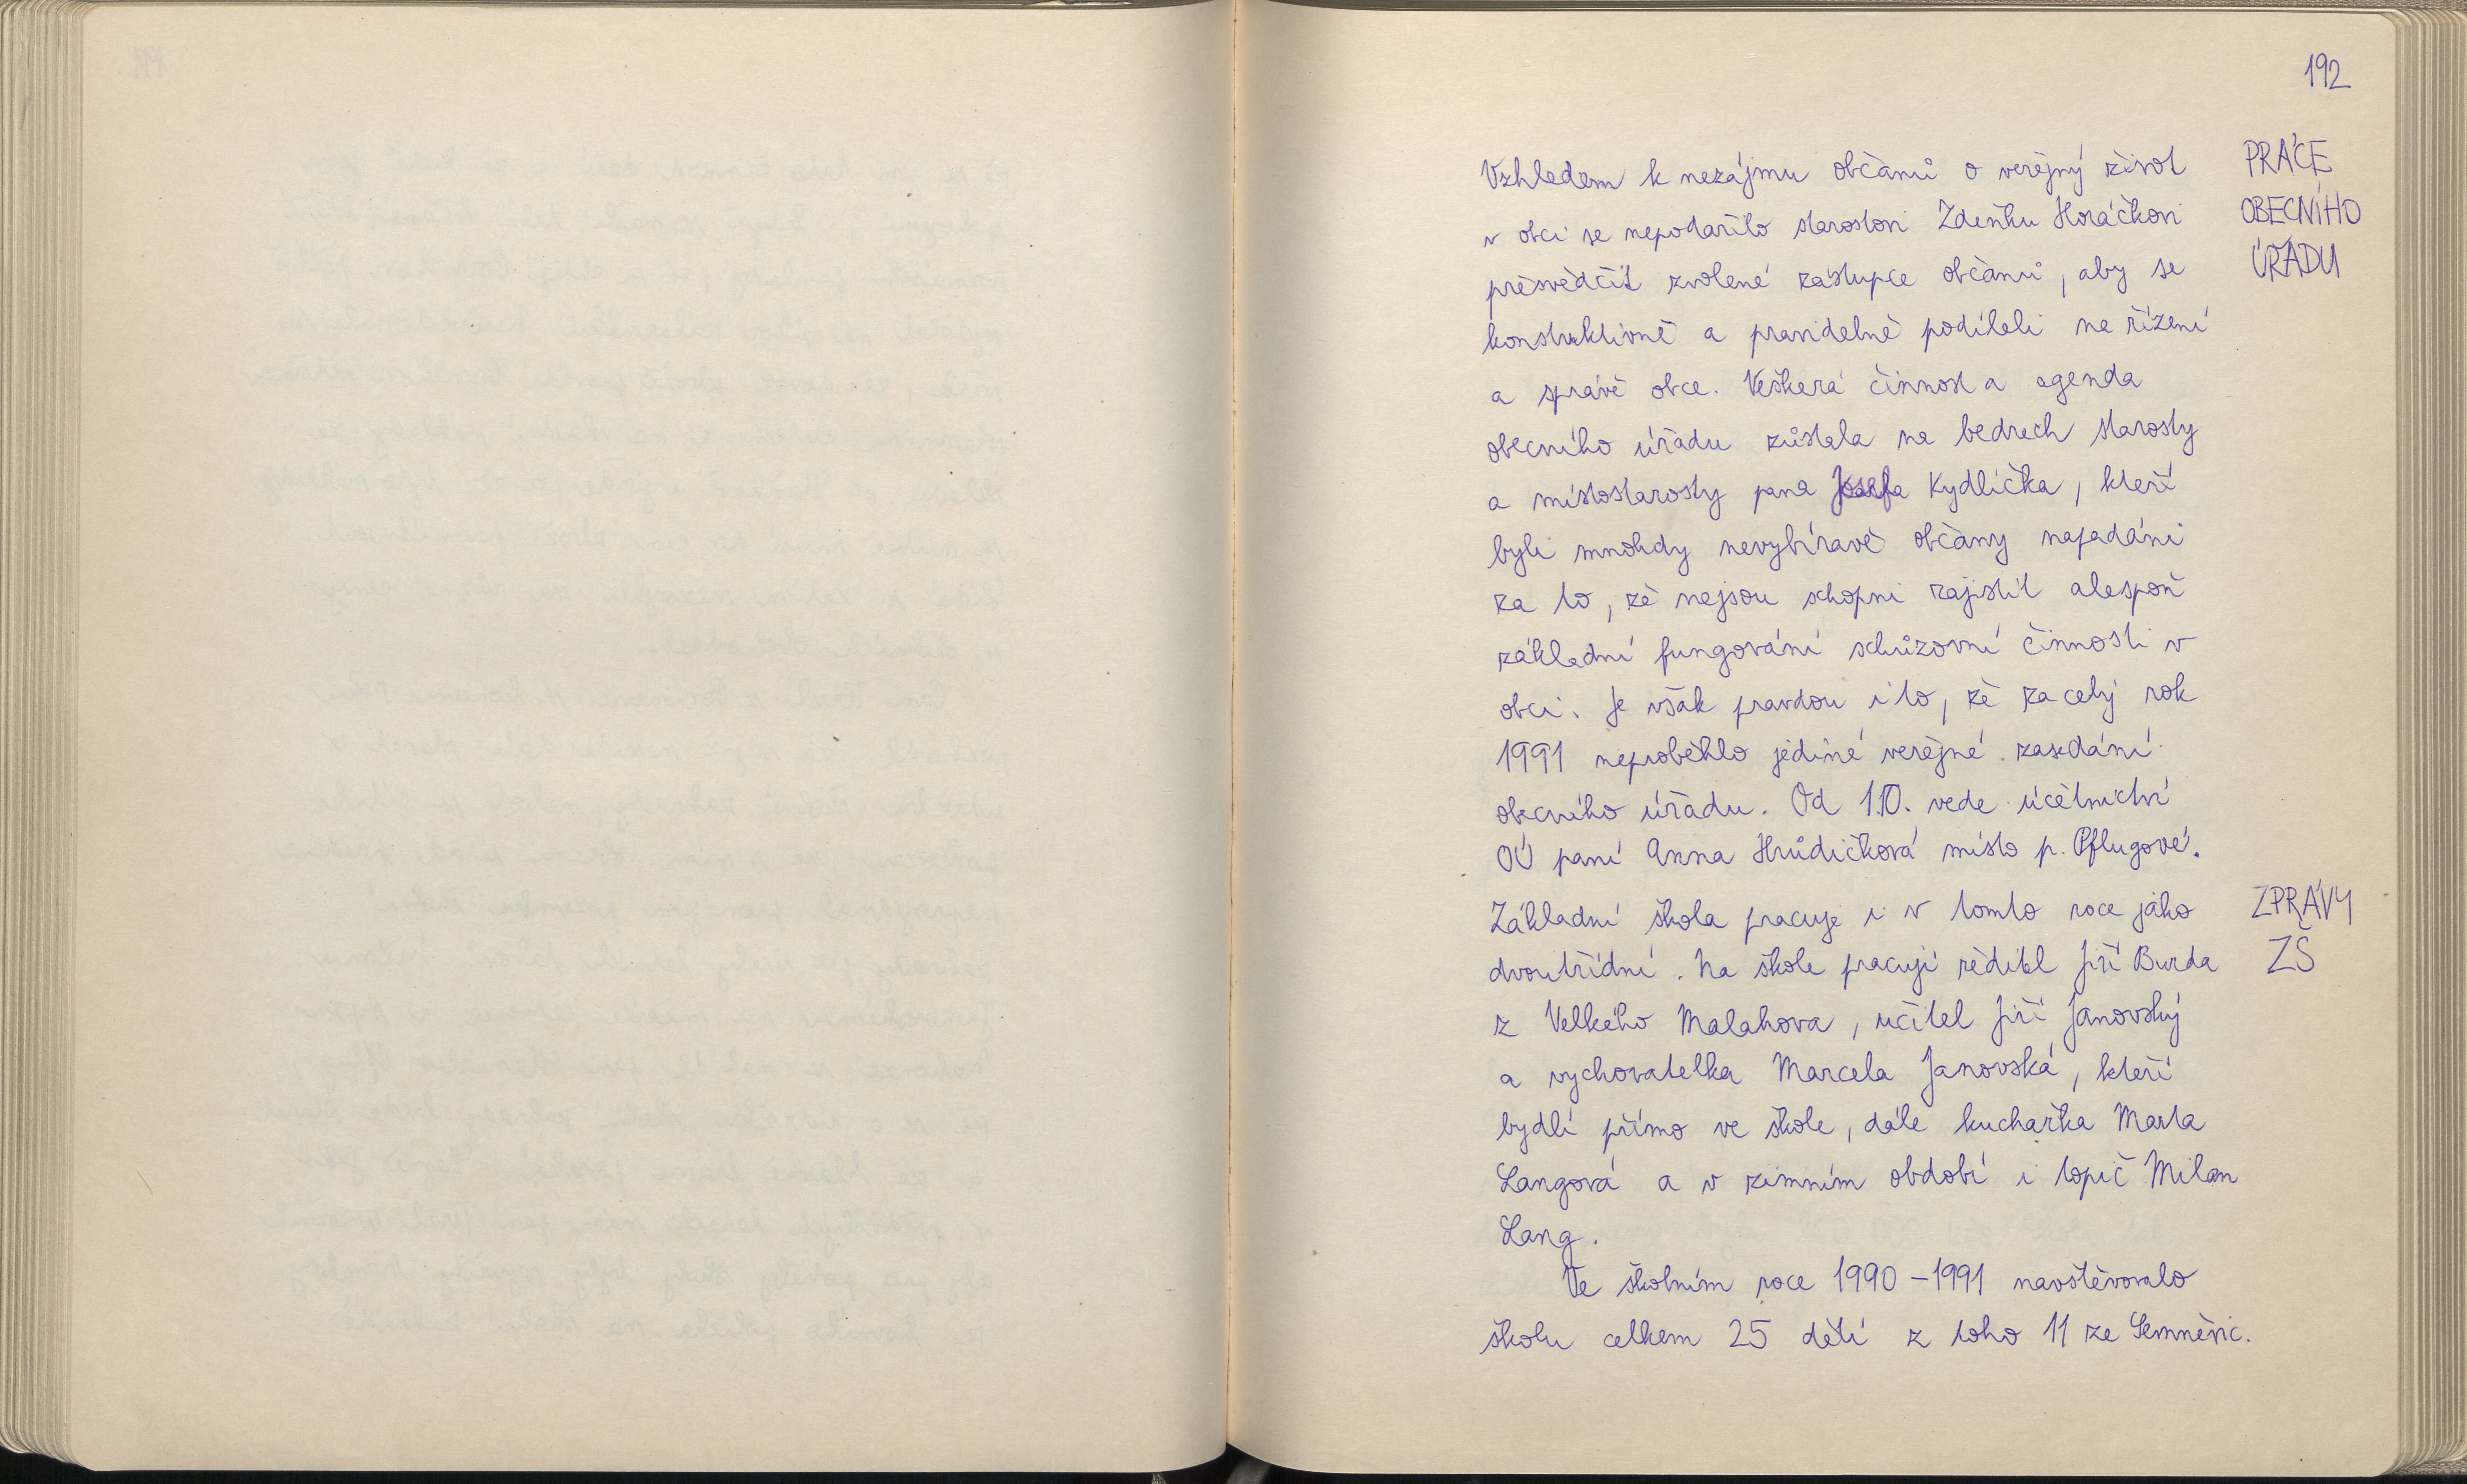 192
PRÁCE
OBECNÍHO
ÚŘADU
Vzhledem k nezájmu občanů o veřejný život
v obci se nepodařilo starostovi Zdeňku Horáčkovi
přesvědčit zvolené zástupce občanů, aby se
konstruktivně a pravidelně podíleli na řízení
a správě obce. Veškerá činnost a agenda
obecního úřadu zůstala na bedrech starosty
a místostarosty pana Josefa Kydlíčka, kteří
byli mnohdy nevybíravě občany napadáni
za to, že nejsou schopni zajistit alespoň
základní fungování schůzovní činnosti v
obci. Je však pravdou i to, že za celý rok
1991 neproběhlo jediné veřejné zasedání
obecního úřadu. Od 1.10. vede účetnictví
OÚ paní Anna Hrůdičková místo p. Pflugové.
ZPRÁVY
ZŠ
Základní škola pracuje i v tomto roce jako
dvoutřídní. Na škole pracují ředitel Jiří Burda
z Velkého Malahova, učitel Jiří Janovský
a vychovatelka Marcela Janovská, kteří
bydlí přímo ve škole, dále kuchařka Marta
Langová a v zimním období i topič Milan
Lang.
Ve školním roce 1990 - 1991 navštěvovalo
školu celkem 25 dětí z toho 11 ze Semněvic.